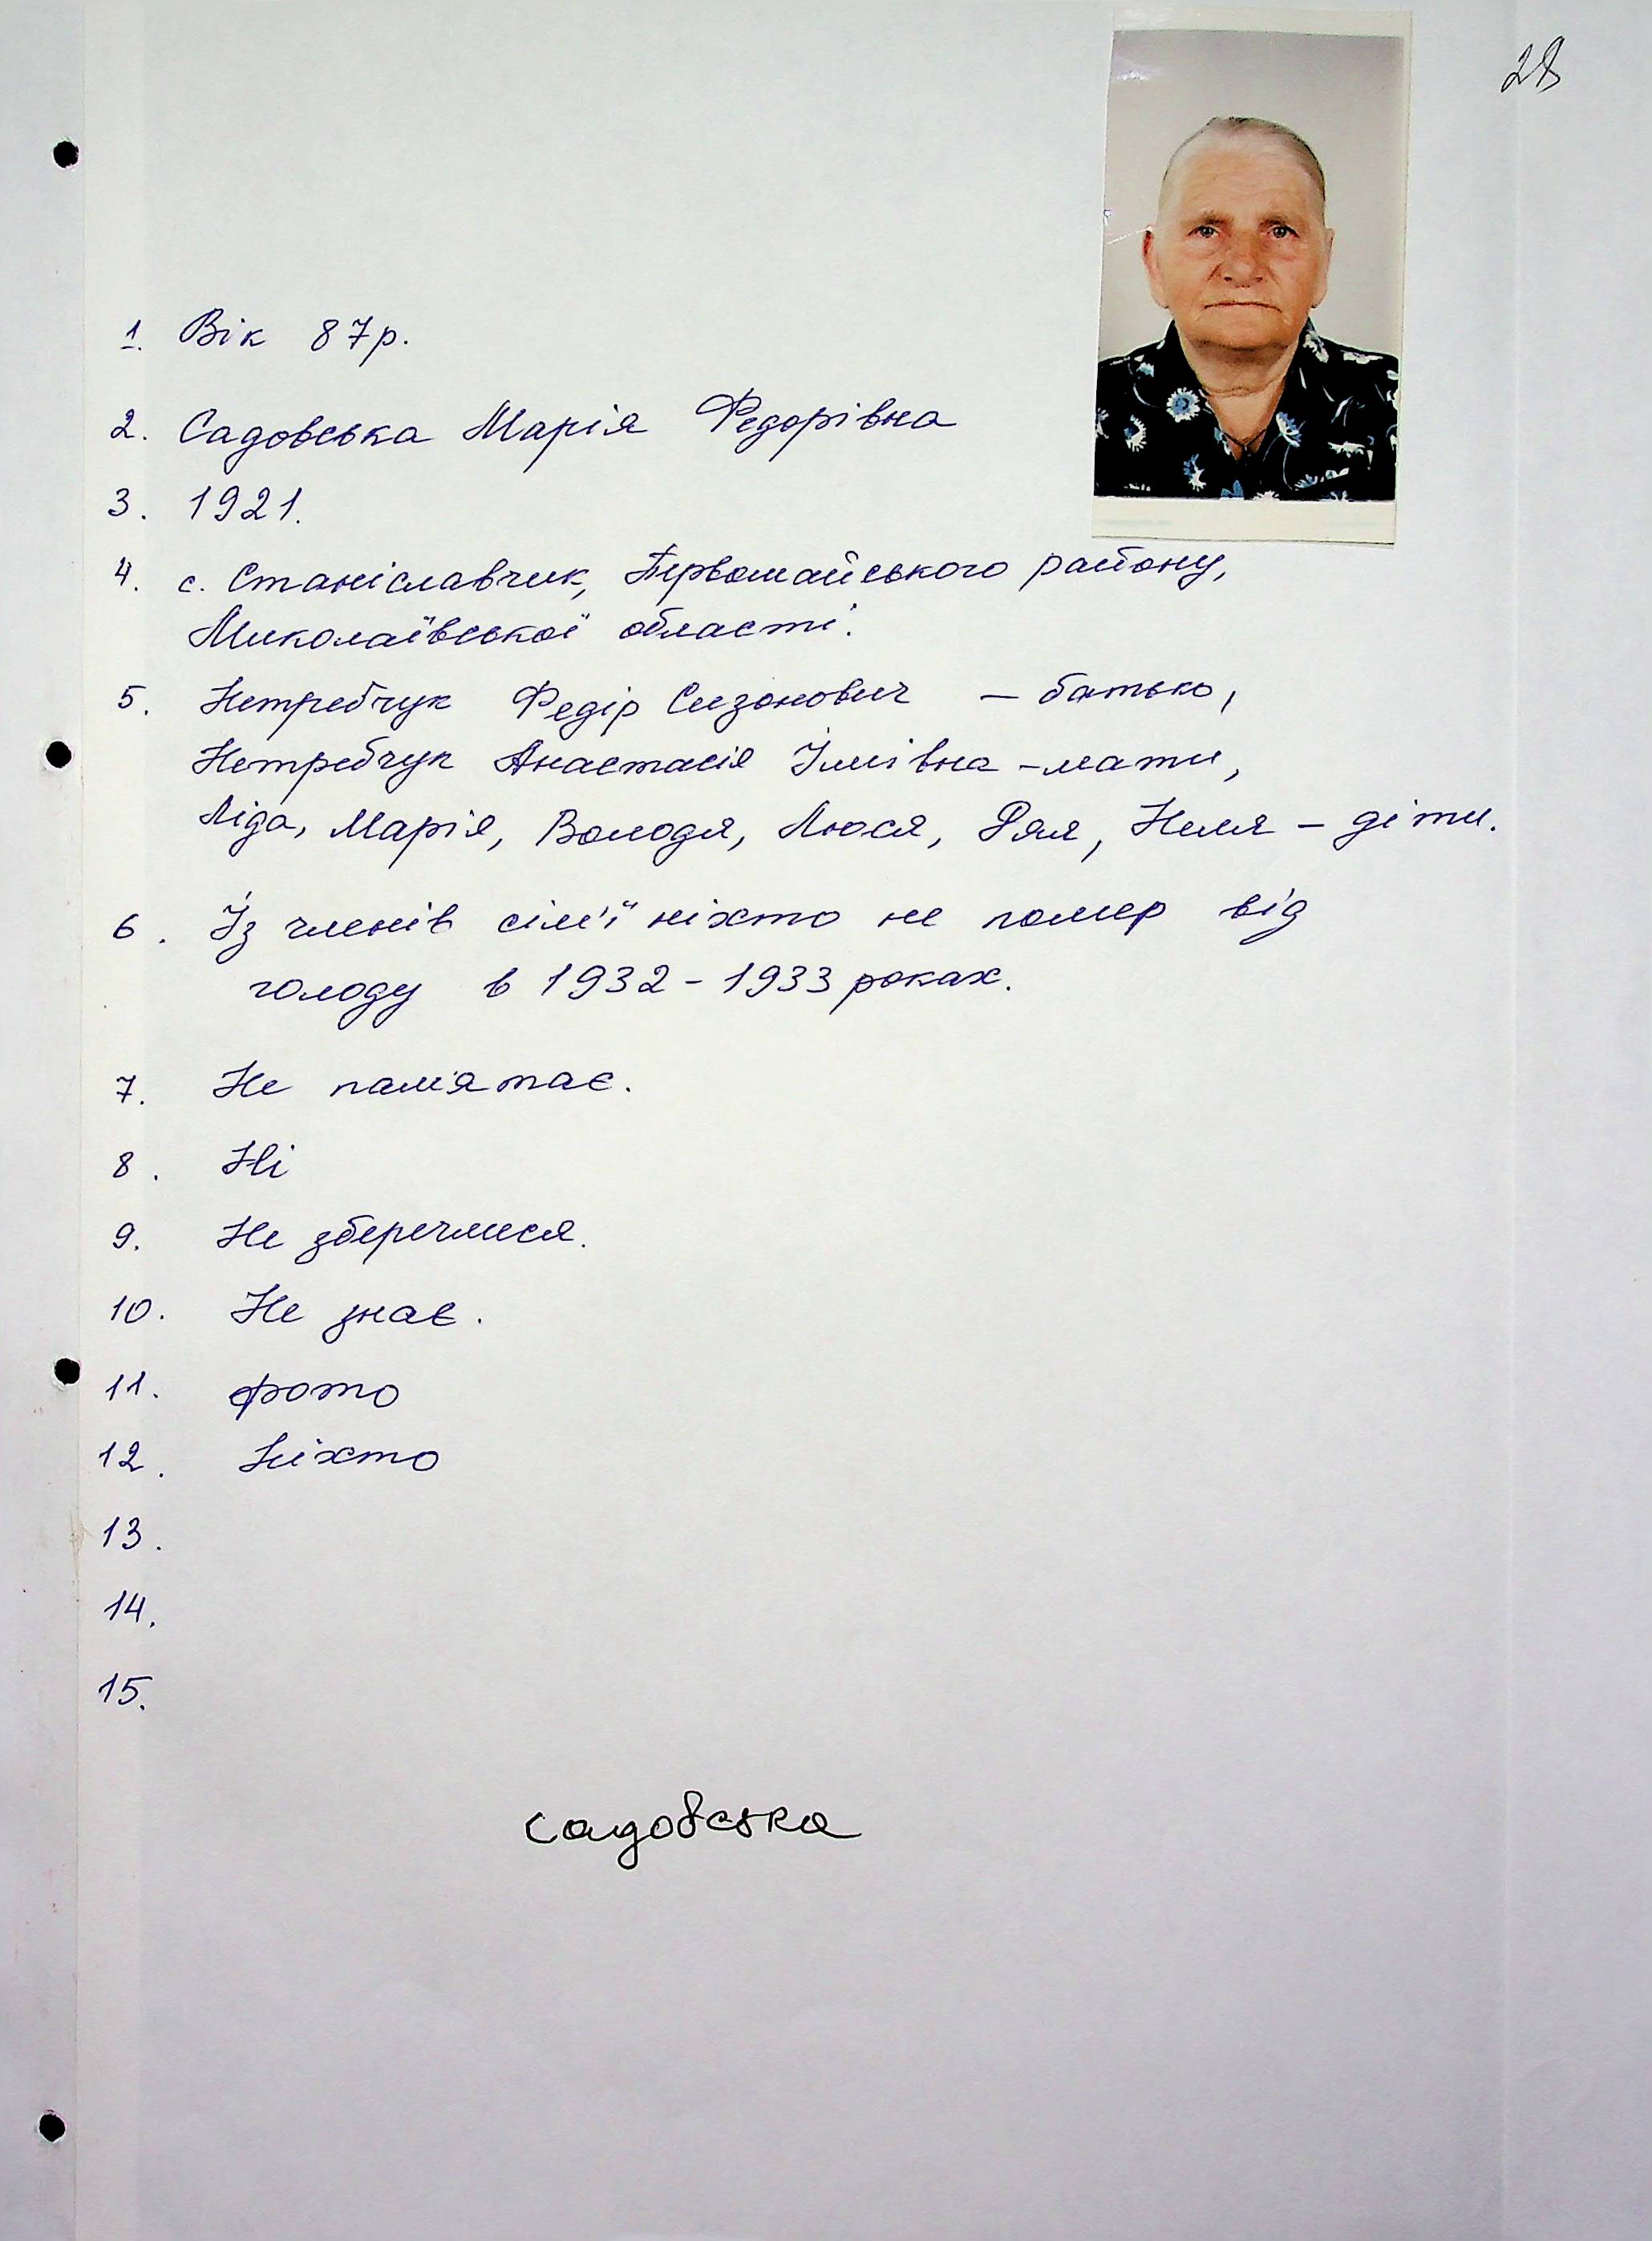 28
1. Вік 87р.
2. Садовська Марія Федорівна
3. 1921.
4. с. Станіславчик, Первомайського району,
Миколаївської області.
5. Нетребчук Федір Сизонович – батько,
Нетребчук Анастасія – мати,
Ліда, Марія, Володя, Люся, Рая, Неля – діти.
6. Із членів сім'ї ніхто не помер від
голоду в 1932 - 1933 роках.
7. Не пам'ятає.
8. Ні
9. Не зберечлися.
10. Не знає.
11. фото
12. Ніхто
13.
14.
15.
Садовська